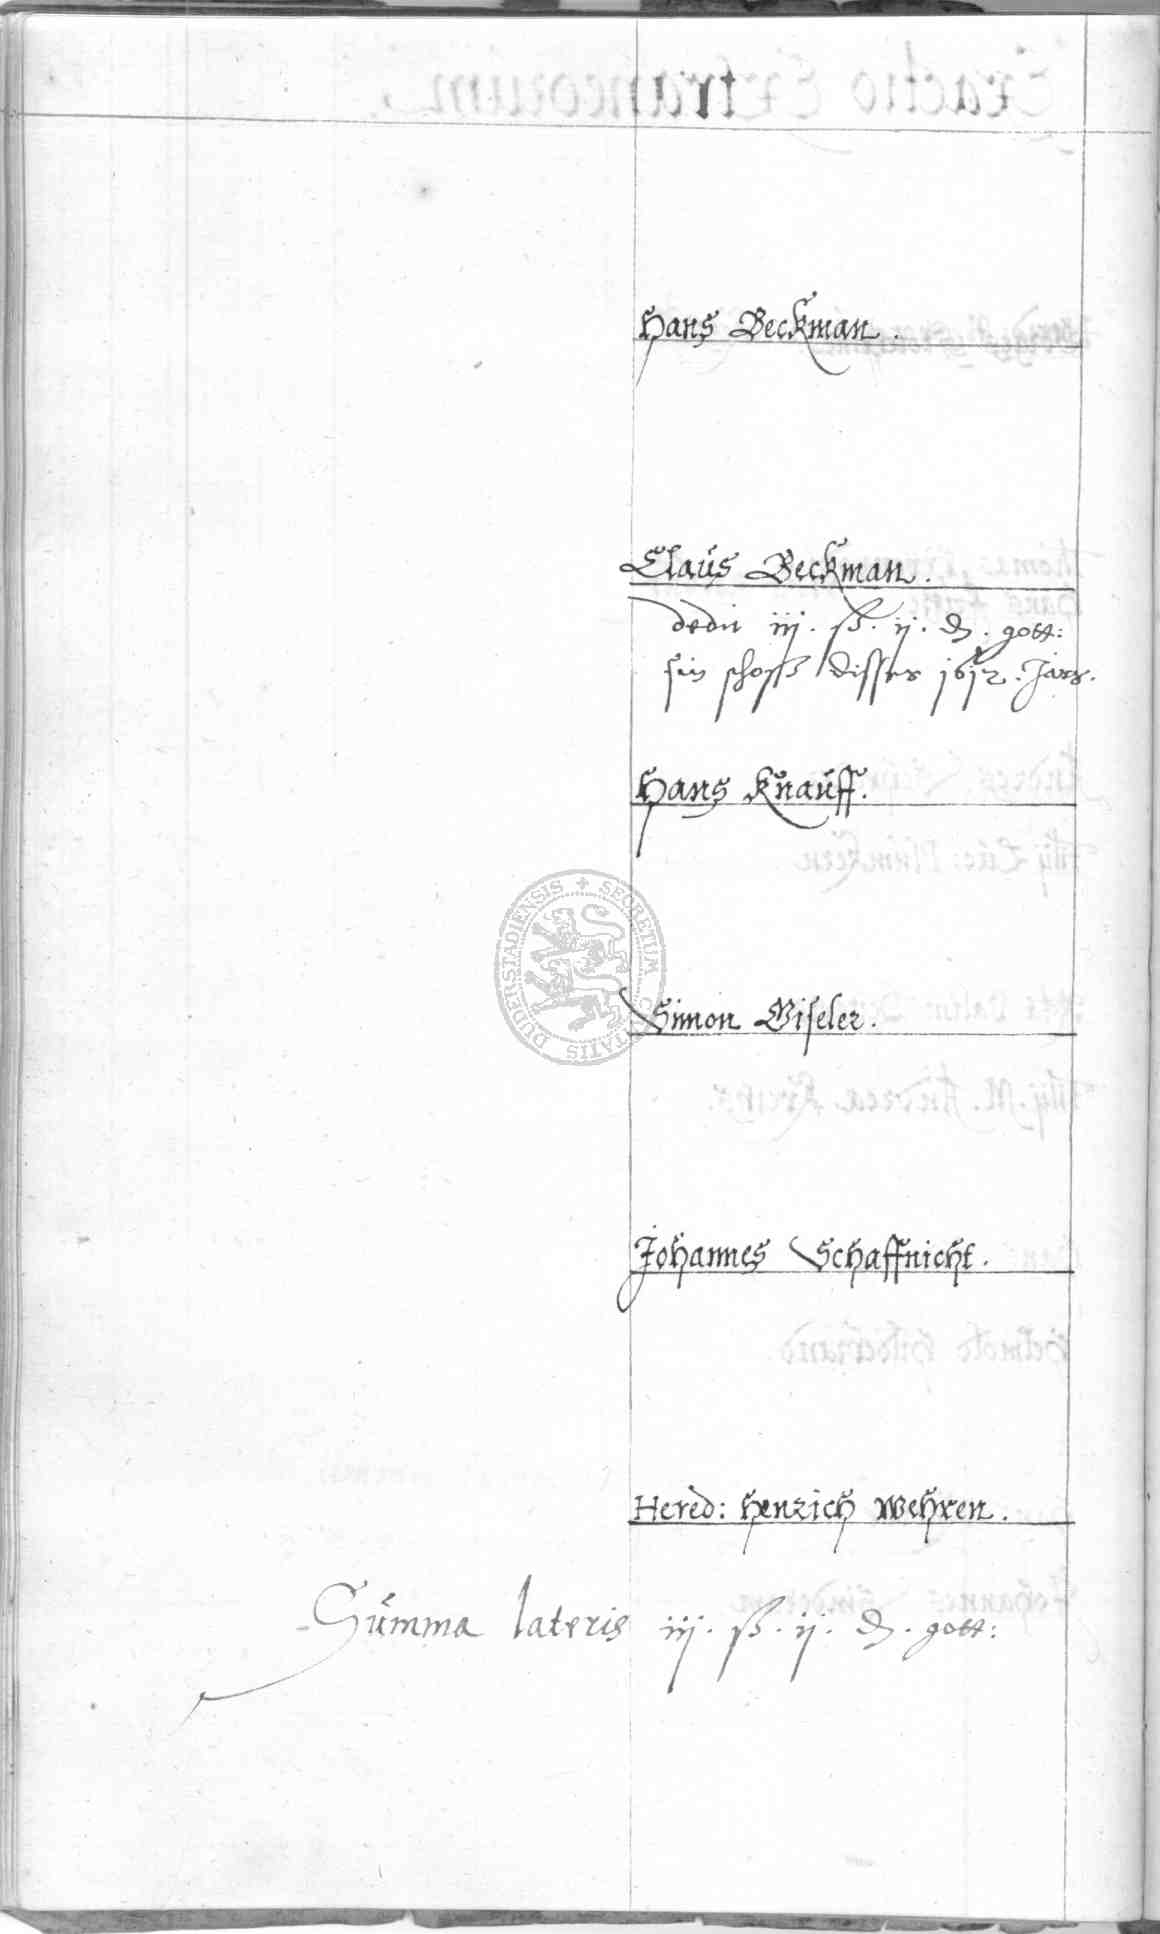 Hans Beckman.
Claus Beckman.
dedit iij. ß. ij. d. gott:
sin schoss disser 1612. Jars.
Hans Knauff.
Simon Giseler.
Johannes Schaffnicht.
Hered: Henrich Wehren.
Summa lateris iij. ß. ij. d. gott:
SECRETUM CIVITATIS DUDERSTADIENSIS